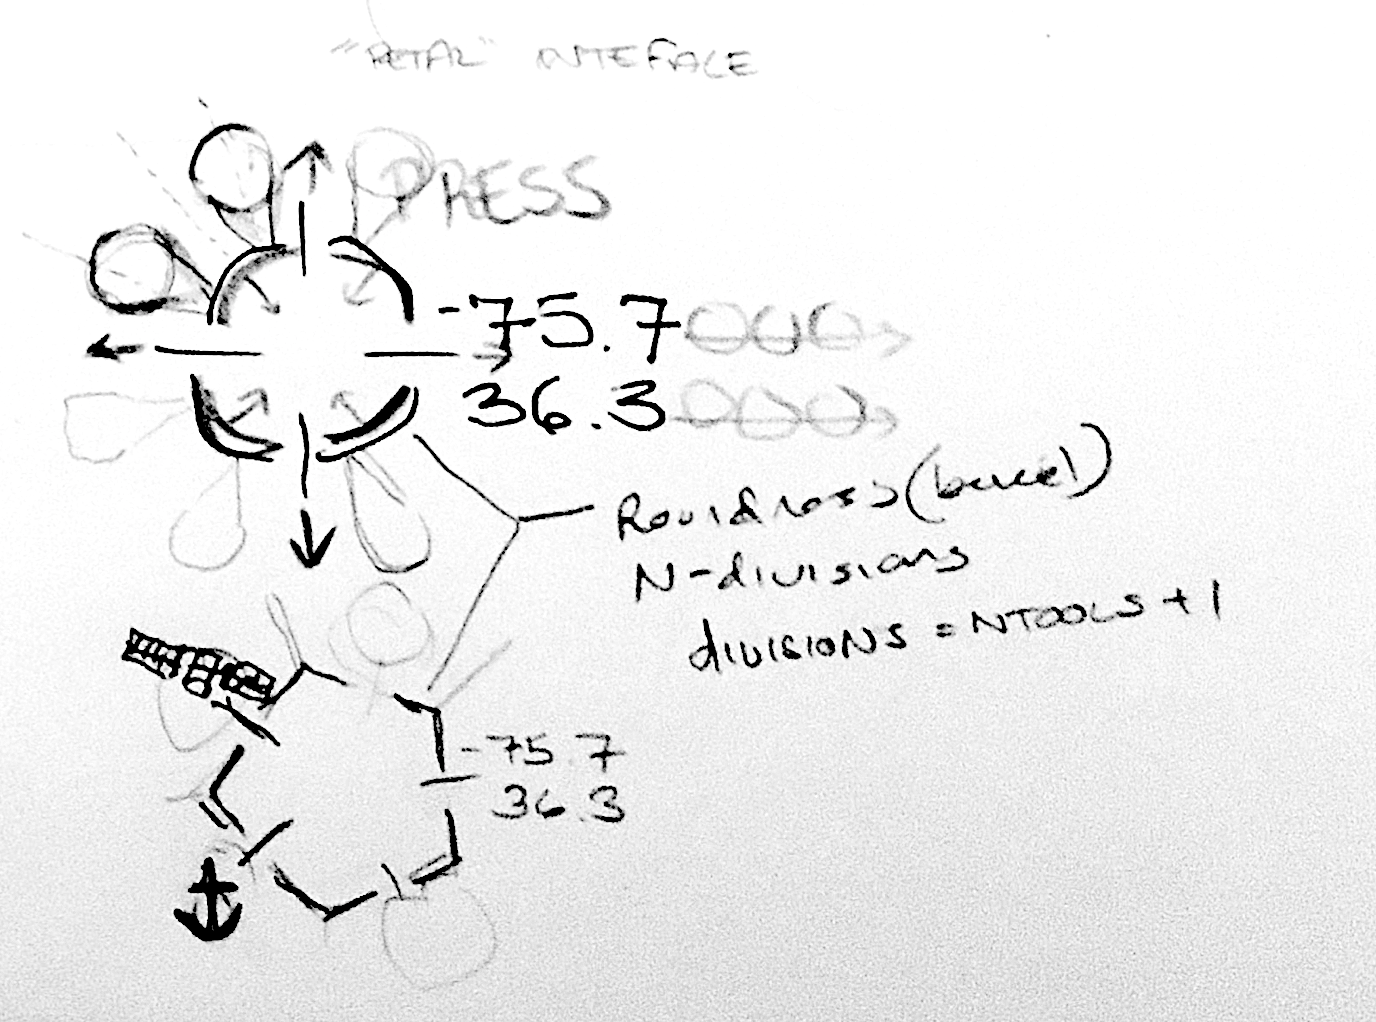 "PETAL" INTEFACE
PRESS
-75.7000
36.3000
Roundness (bevel)
N-divisions
divisions = NTOOLS + 1
-75.7
36.3